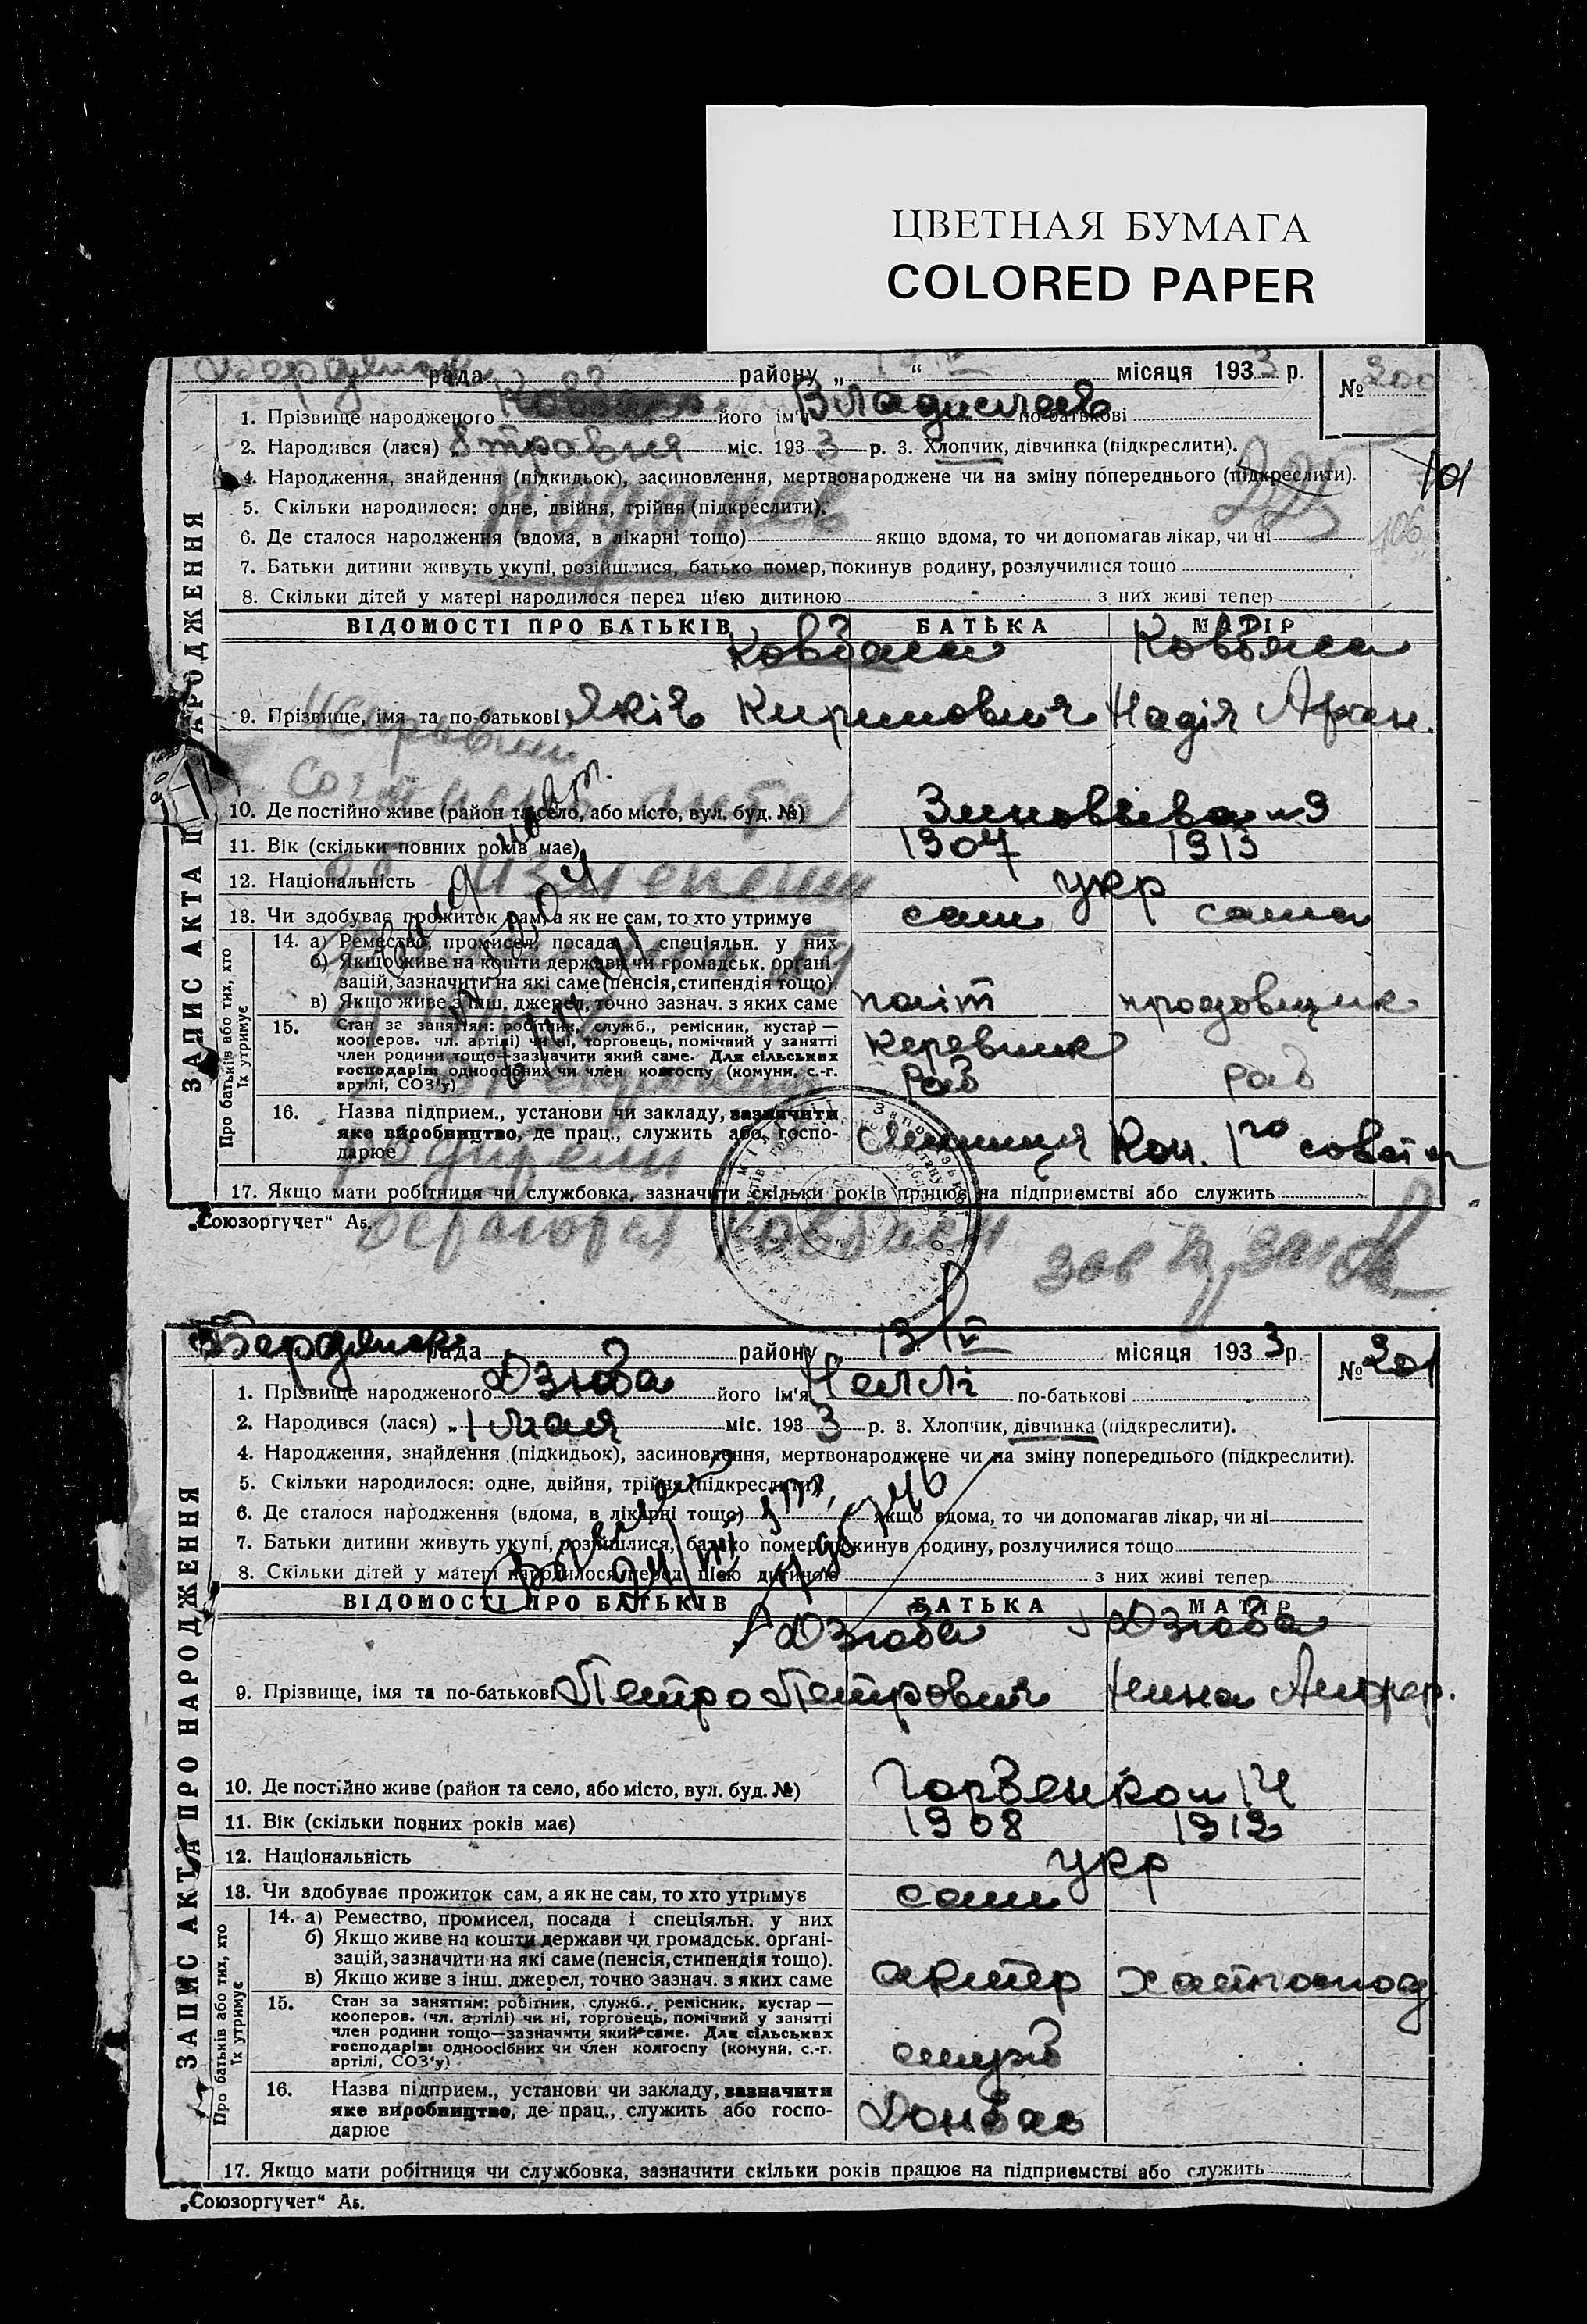 ЦВЕТНАЯ БУМАГА
COLORED PAPER
рада району „ “ місяця 1933 р. № 200
1. Прізвище народженого його ім'я Владислав по-батькові
2. Народився (лася) „ 8 травня міс. 1933 р. 3. Хлопчик, дівчинка (підкреслити).
4. Народження, знайдення (підкидьок), засиновлення, мертвонароджене чи на зміну попереднього (підкреслити).
5. Скільки народилося: одне, двійня, трійня (підкреслити).
6. Де сталося народження (вдома, в лікарні тощо) якщо вдома, то чи допомагав лікар, чи ні
106
7. Батьки дитини живуть укупі, розійшлися, батько помер, покинув родину, розлучилися тощо
8. Скільки дітей у матері народилося перед цією дитиною з них живі тепер
ЗАПИС АКТА ПРО НАРОДЖЕННЯ
ВІДОМОСТІ ПРО БАТЬКІВ БАТЬКА МАТІР
9. Прізвище, імя та по-батькові Яків Кирилович Надія Афан.
10. Де постійно живе (район та село, або місто, вул. буд. №) Зиновьева 49
11. Вік (скільки повних років має) 1907 1913
12. Національність укр
13. Чи здобуває прожиток сам, а як не сам, то хто утримує сам сама
Про батьків або тих, хто їх утримує
14. а) Ремество, промисел, посада і спеціяльн. у них
б) Якщо живе на кошти держави чи громадськ. орґані-
зацій, зазначити на які саме (пенсія, стипендія тощо).
в) Якщо живе з інш. джерел, точно зазнач. з яких саме
15. Стан за заняттям: робітник, служб., ремісник, кустар —
кооперов. (чл. артілі) чи ні, торговець, помічний у занятті
член родини тощо—зазначити який саме. Для сільських
господарів: одноосібних чи член колгоспу (комуни, с.-г.
артілі, СОЗ'у)
керевник
раб раб
16. Назва підприєм., установи чи закладу, зазначити
яке виробництво, де прац., служить або госпо-
дарюе
17. Якщо мати робітниця чи службовка, зазначити скільки років працює на підприємстві або служить
„Союзоргучет“ Аб.
родители
Бердянськ рада району 13/V місяця 1933 р. № 201
1. Прізвище народженого Дзюба його ім'я Неллі по-батькові
2. Народився (лася) „ 1 мая міс. 1933 р. 3. Хлопчик, дівчинка (підкреслити).
4. Народження, знайдення (підкидьок), засиновлення, мертвонароджене чи на зміну попереднього (підкреслити).
5. Скільки народилося: одне, двійня, трійня (підкреслити)
6. Де сталося народження (вдома, в лікарні тощо) якщо вдома, то чи допомагав лікар, чи ні
7. Батьки дитини живуть укупі, розійшлися, батько помер, покинув родину, розлучилися тощо
8. Скільки дітей у матері народилося перед цією дитиною з них живі тепер
ЗАПИС АКТА ПРО НАРОДЖЕННЯ
ВІДОМОСТІ ПРО БАТЬКІВ БАТЬКА МАТІР
Дзюба Дзюба
9. Прізвище, імя та по-батькові Петро Петрович Нина
10. Де постійно живе (район та село, або місто, вул. буд. №) 14
11. Вік (скільки повних років має) 1908 1912
12. Національність укр
13. Чи здобуває прожиток сам, а як не сам, то хто утримує сам
Про батьків або тих, хто їх утримує
14. а) Ремество, промисел, посада і спеціяльн. у них
б) Якщо живе на кошти держави чи громадськ. орґані-
зацій, зазначити на які саме (пенсія, стипендія тощо).
в) Якщо живе з інш. джерел, точно зазнач. з яких саме актер хатгоспод
15. Стан за заняттям: робітник, служб., ремісник, кустар —
кооперов. (чл. артілі) чи ні, торговець, помічний у занятті
член родини тощо—зазначити який саме. Для сільських
господарів: одноосібних чи член колгоспу (комуни, с.-г.
артілі, СОЗ'у)
служб
16. Назва підприєм., установи чи закладу, зазначити
яке виробництво, де прац., служить або госпо-
дарюе
Донбас
17. Якщо мати робітниця чи службовка, зазначити скільки років працює на підприємстві або служить
„Союзоргучет“ Аб.